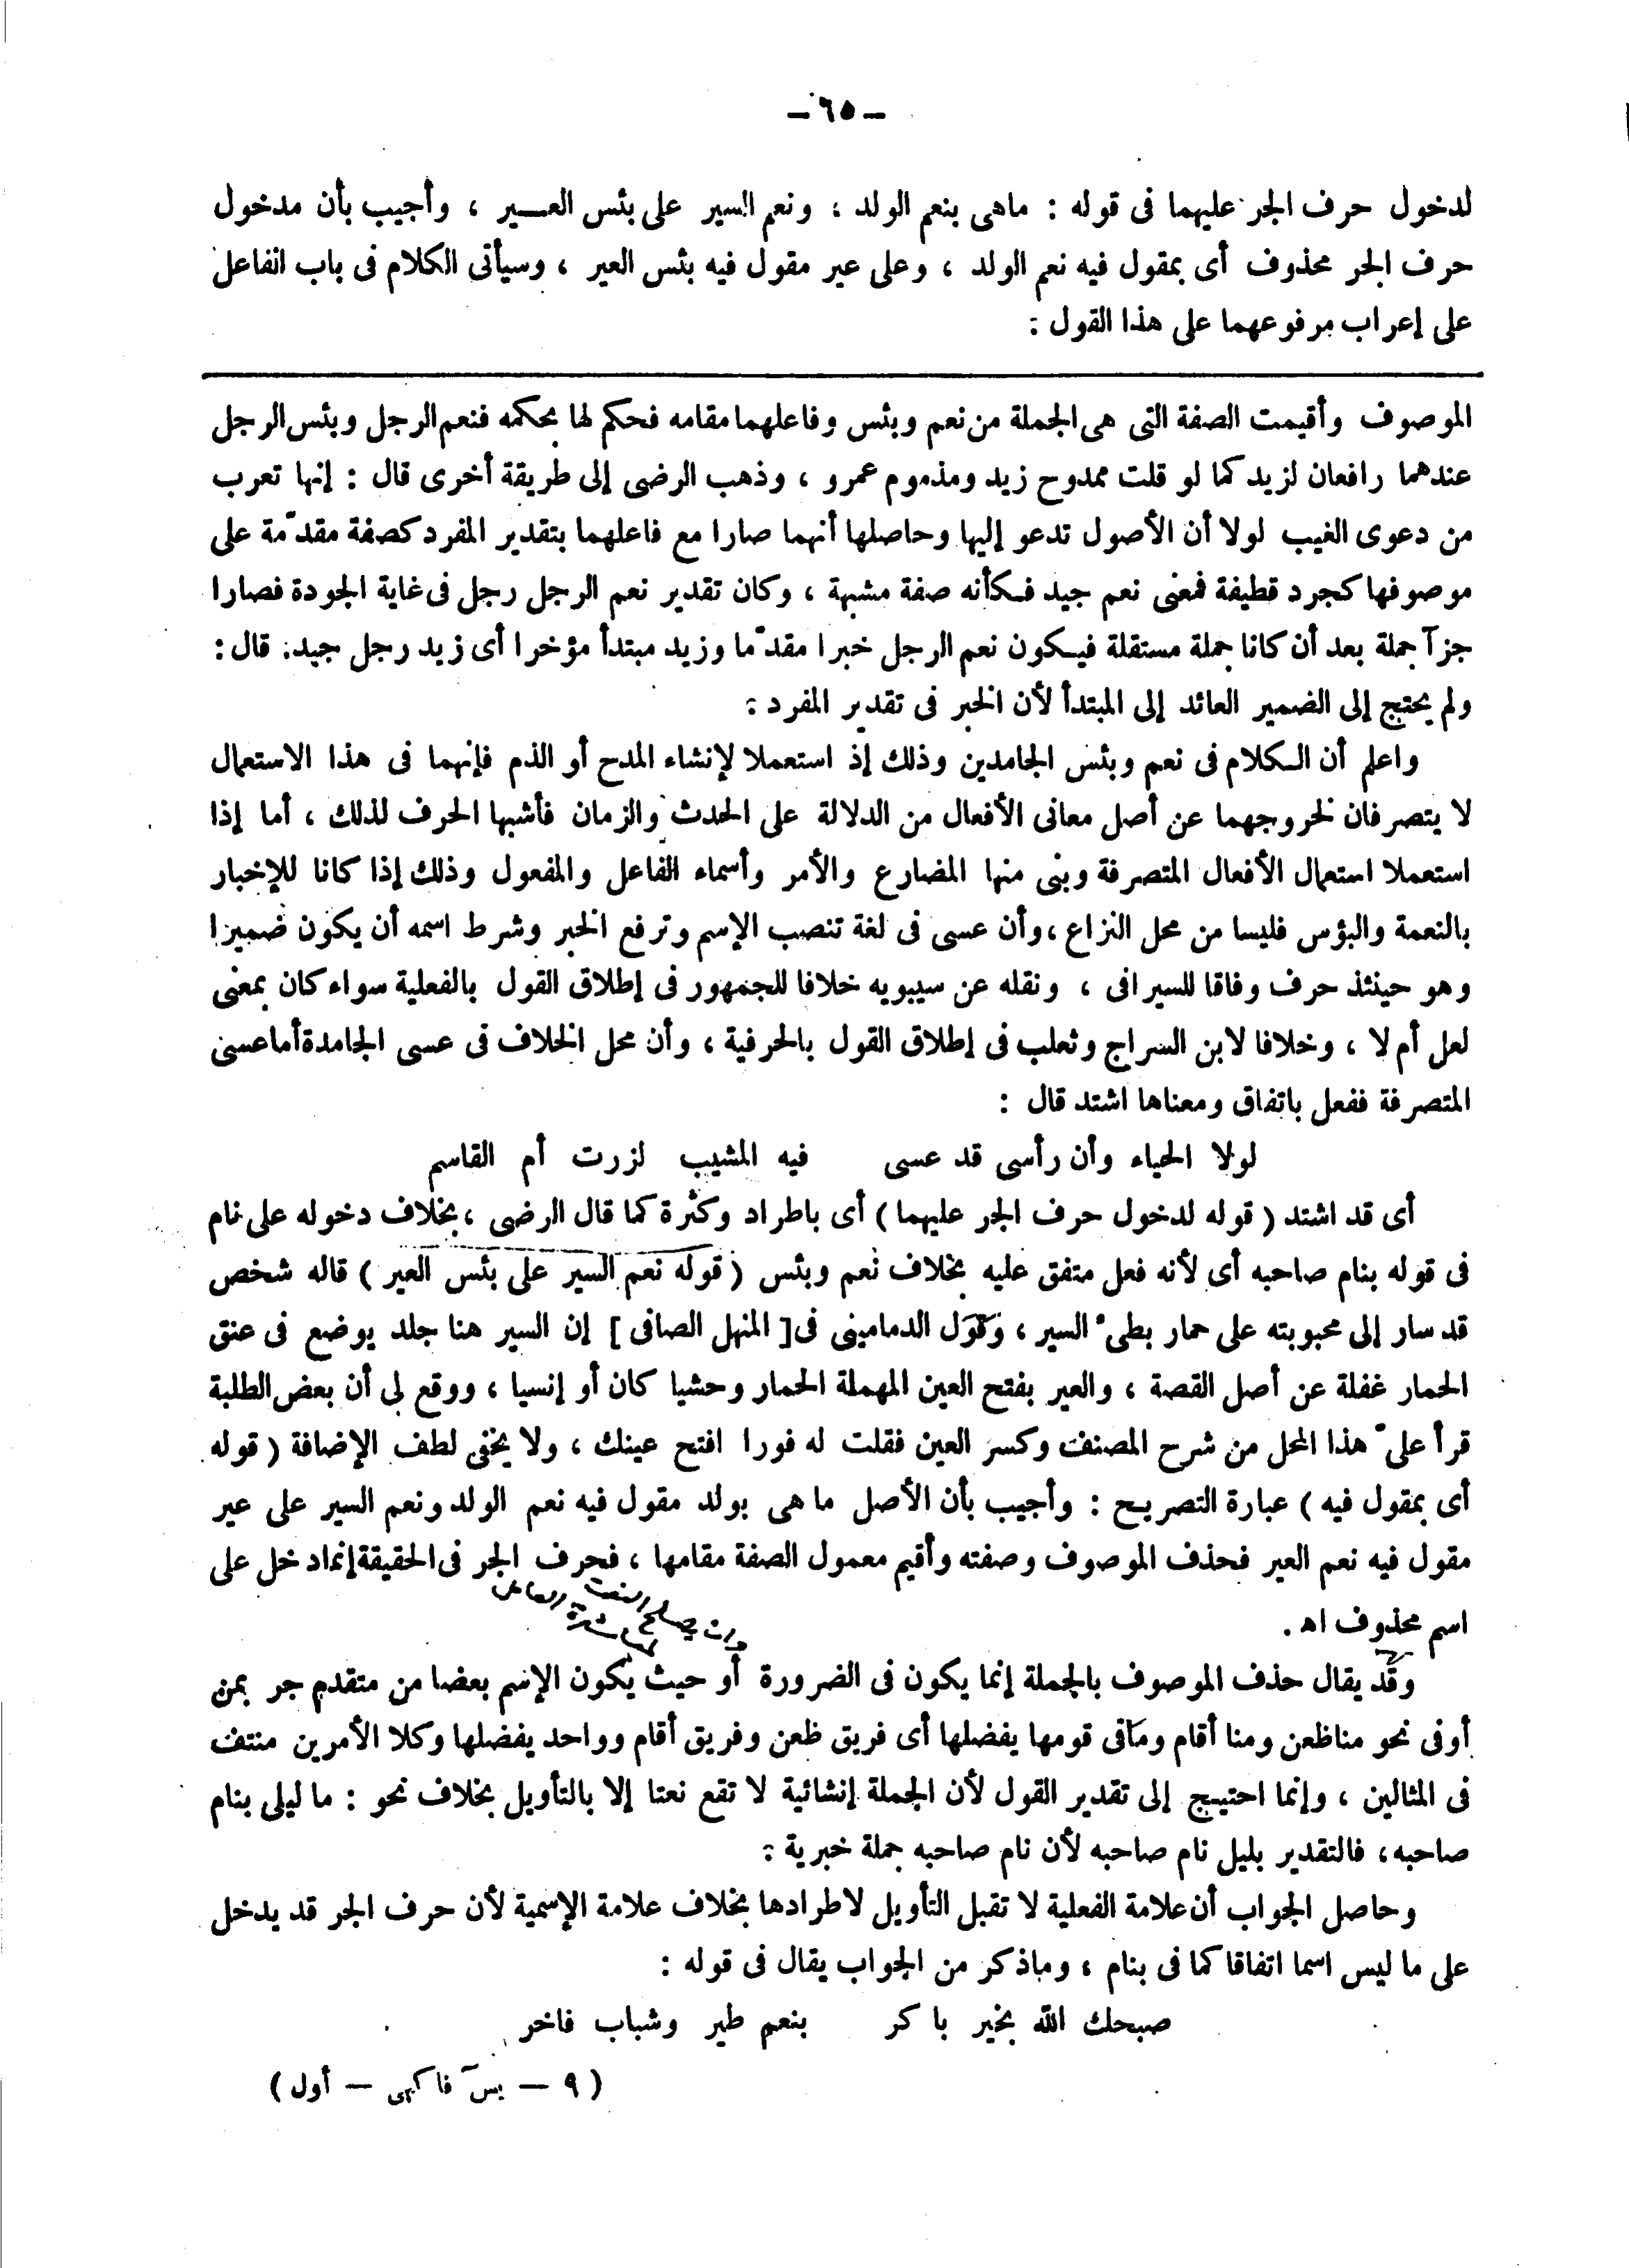 - ٦٥ -
لدخول حرف الجر عليهما فى قوله : ماهى بنعم الولد ، ونعم السير على بئس العــير ، وأجيب بأن مدخول
حرف الجر محذوف أى بمقول فيه نعم الولد ، وعلى عير مقول فيه بئس العير ، وسيأتى الكلام فى باب الفاعل
على إعراب مرفوعهما على هذا القول :
الموصوف وأقيمت الصفة التى هى الجملة من نعم وبئس وفاعلهما مقامه فحكم لها بحكمه فنعم الرجل وبئس الرجل
عندهما رافعان لزيد كما لو قلت ممدوح زيد ومذموم عمرو ، وذهب الرضى إلى طريقة أخرى قال : إنها تعرب
من دعوى الغيب لولا أن الأصول تدعو إليها وحاصلها أنهما صارا مع فاعلهما بتقدير المفرد كصفة مقدّمة على
موصوفها كجرد قطيفة فمعنى نعم جيد فكأنه صفة مشبهة ، وكان تقدير نعم الرجل رجل فى غاية الجودة فصارا
جزآ جملة بعد أن كانا جملة مستقلة فيكون نعم الرجل خبرا مقدّما وزيد مبتدأ مؤخرا أى زيد رجل جيد. قال :
ولم يحتج إلى الضمير العائد إلى المبتدأ لأن الخبر فى تقدير المفرد :
واعلم أن الكلام فى نعم وبئس الجامدين وذلك إذ استعملا لإنشاء المدح أو الذم فإنهما فى هذا الاستعمال
لا يتصرفان لخروجهما عن أصل معانى الأفعال من الدلالة على الحدث والزمان فأشبها الحرف لذلك ، أما إذا
استعملا استعمال الأفعال المتصرفة وبنى منها المضارع والأمر وأسماء الفاعل والمفعول وذلك إذا كانا للإخبار
بالنعمة والبؤس فليسا من محل النزاع ، وأن عسى فى لغة تنصب الإسم وترفع الخبر وشرط اسمه أن يكون ضميرا
وهو حينئذ حرف وفاقا للسيرافى ، ونقله عن سيبويه خلافا للجمهور فى إطلاق القول بالفعلية سواء كان بمعنى
لعل أم لا ، وخلافا لابن السراج وثعلب فى إطلاق القول بالحرفية ، وأن محل الخلاف فى عسى الجامدة أما عسى
المتصرفة ففعل باتفاق ومعناها اشتد قال :
لولا الحياء وأن رأسى قد عسى فيه المشيب لزرت أم القاسم
أى قد اشتد ( قوله لدخول حرف الجر عليهما ) أى باطراد وكثرة كما قال الرضى ، بخلاف دخوله على نام
فى قوله بنام صاحبه أى لأنه فعل متفق عليه بخلاف نعم وبئس ( قوله نعم السير على بئس العير ) قاله شخص
قد سار إلى محبوبته على حمار بطىء السير ، وقول الدمامينى فى [ المنهل الصافى ] إن السير هنا جلد يوضع فى عنق
الحمار غفلة عن أصل القصة ، والعير بفتح العين المهملة الحمار وحشيا كان أو إنسيا ، ووقع لى أن بعض الطلبة
قرأ علىّ هذا المحل من شرح المصنف وكسر العين فقلت له فورا افتح عينك ، ولا يخفى لطف الإضافة ( قوله
أى بمقول فيه ) عبارة التصريح : وأجيب بأن الأصل ما هى بولد مقول فيه نعم الولد ونعم السير على عير
مقول فيه نعم العير فحذف الموصوف وصفته وأقيم معمول الصفة مقامها ، فحرف الجر فى الحقيقة إنما دخل على
اسم محذوف اه .
وقد يقال حذف الموصوف بالجملة إنما يكون فى الضرورة أو حيث يكون الإسم بعضا من متقدم جر بمن
أو فى نحو منا ظعن ومنا أقام وما فى قومها يفضلها أى فريق ظعن وفريق أقام وواحد يفضلها وكلا الأمرين منتف
فى المثالين ، وإنما احتيج إلى تقدير القول لأن الجملة إنشائية لا تقع نعتا إلا بالتأويل بخلاف نحو : ما ليلى بنام
صاحبه ، فالتقدير بليل نام صاحبه لأن نام صاحبه جملة خبرية :
وحاصل الجواب أن علامة الفعلية لا تقبل التأويل لاطرادها بخلاف علامة الإسمية لأن حرف الجر قد يدخل
على ما ليس اسما اتفاقا كما فى بنام ، وماذكر من الجواب يقال فى قوله :
صبحك الله بخير باكر بنعم طير وشباب فاخر
( ٩ - يسٓ فاكهى - أول )